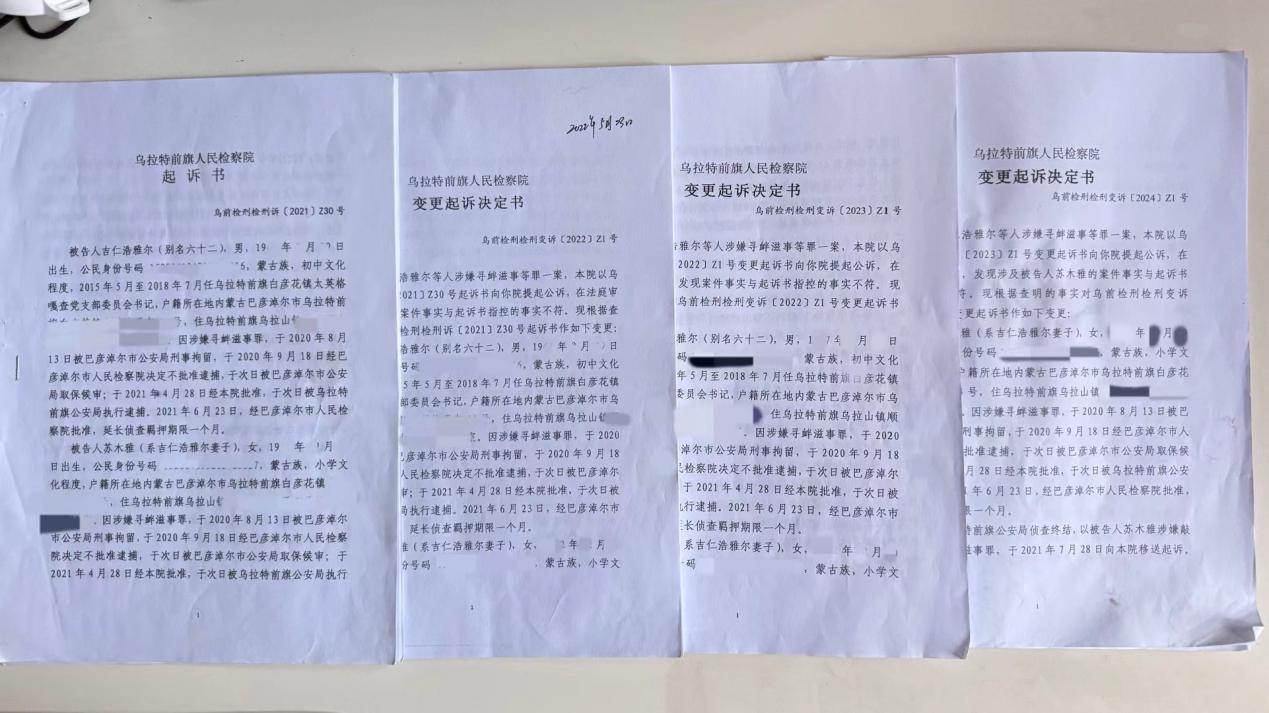 乌拉特前旗人民检察院
起诉书
乌前检刑检刑诉〔2021〕Z30号
被告人吉仁浩雅尔（别名六十二），男，19 年 月 日
出生，公民身份号码 6，蒙古族，初中文化
程度，2015年5月至2018年7月任乌拉特前旗白彦花镇太英格
嘎查党支部委员会书记，户籍所在地内蒙古巴彦淖尔市乌拉特前
号，住乌拉特前旗乌拉山镇
因涉嫌寻衅滋事罪，于2020年8月
13日被巴彦淖尔市公安局刑事拘留，于2020年9月18日经巴
彦淖尔市人民检察院决定不批准逮捕，于次日被巴彦淖尔市公安
局取保候审；于2021年4月28日经本院批准，于次日被乌拉特
前旗公安局执行逮捕。2021年6月23日，经巴彦淖尔市人民检
察院批准，延长侦查羁押期限一个月。
被告人苏木雅（系吉仁浩雅尔妻子），女，19 年 月
日出生，公民身份号码 7，蒙古族，小学文
化程度，户籍所在地内蒙古巴彦淖尔市乌拉特前旗白彦花镇
，住乌拉特前旗乌拉山镇
。因涉嫌寻衅滋事罪，于2020年8月13日被巴彦淖尔
市公安局刑事拘留，于2020年9月18日经巴彦淖尔市人民检察
院决定不批准逮捕，于次日被巴彦淖尔市公安局取保候审；于
2021年4月28日经本院批准，于次日被乌拉特前旗公安局执行
1
2022年5月23日
乌拉特前旗人民检察院
变更起诉决定书
乌前检刑检刑变诉〔2022〕Z1号
浩雅尔等人涉嫌寻衅滋事等罪一案，本院以乌
021〕Z30号起诉书向你院提起公诉，在法庭审
案件事实与起诉书指控的事实不符。现根据查
检刑检刑诉〔2021〕Z30号起诉书作如下变更：
浩雅尔（别名六十二），男，19 年 月 日
，蒙古族，初中文化
5年5月至2018年7月任乌拉特前旗白彦花镇
部委员会书记，户籍所在地内蒙古巴彦淖尔市
号，住乌拉特前旗乌拉山镇
。因涉嫌寻衅滋事罪，于2020
巴彦淖尔市公安局刑事拘留，于2020年9月18
人民检察院决定不批准逮捕，于次日被巴彦淖尔
审；于2021年4月28日经本院批准，于次日被
局执行逮捕。2021年6月23日，经巴彦淖尔
延长侦查羁押期限一个月。
雅（系吉仁浩雅尔妻子），女， 年 月
份号码 ，蒙古族，小学文
1
乌拉特前旗人民检察院
变更起诉决定书
乌前检刑检刑变诉〔2023〕Z1号
雅尔等人涉嫌寻衅滋事等罪一案，本院以乌
2022〕Z1号变更起诉书向你院提起公诉，在
发现案件事实与起诉书指控的事实不符。现
乌前检刑检刑变诉〔2022〕Z1号变更起诉书
雅尔（别名六十二），男，1 7年 月 日
码 蒙古族，初中文化
年5月至2018年7月任乌拉特前旗白彦花镇
委员会书记，户籍所在地内蒙古巴彦淖尔市乌
住乌拉特前旗乌拉山镇顺
。因涉嫌寻衅滋事罪，于2020
彦淖尔市公安局刑事拘留，于2020年9月18
民检察院决定不批准逮捕，于次日被巴彦淖尔
于2021年4月28日经本院批准，于次日被
执行逮捕。2021年6月23日，经巴彦淖尔市
延长侦查羁押期限一个月。
雅（系吉仁浩雅尔妻子），女， 年 月
份号码 ，蒙古族，小学文
1
乌拉特前旗人民检察院
变更起诉决定书
乌前检刑检刑变诉〔2024〕Z1号
浩雅尔等人涉嫌寻衅滋事等罪一案，本院以乌
〔2023〕Z1号变更起诉书向你院提起公诉，在
，发现涉及被告人苏木雅的案件事实与起诉书
符。现根据查明的事实对乌前检刑检刑变诉
变更起诉书作如下变更：
雅（系吉仁浩雅尔妻子），女， 年 月
份号码 ，蒙古族，小学文
户籍所在地内蒙古巴彦淖尔市乌拉特前旗白彦花
号，住乌拉特前旗乌拉山镇
。因涉嫌寻衅滋事罪，于2020年8月13日被巴
刑事拘留，于2020年9月18日经巴彦淖尔市人
批准逮捕，于次日被巴彦淖尔市公安局取保候
月28日经本院批准，于次日被乌拉特前旗公安
年6月23日，经巴彦淖尔市人民检察院批准，
一个月。
特前旗公安局侦查终结，以被告人苏木雅涉嫌敲
滋事罪，于2021年7月28日向本院移送起诉。
1